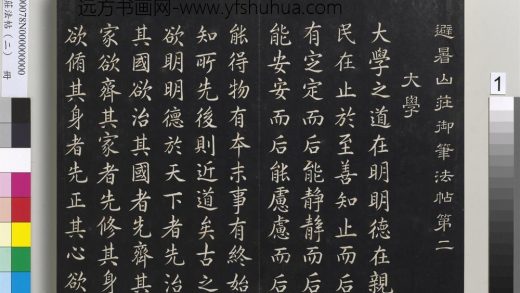 远方书画网-www.yfshuhua.com
避暑山莊御筆法帖第二
大學
大學之道在明明德在親
民在止於至善知止而后
有定定而后能静静而后
能安安而后能慮慮而后
能得物有本末事有終始
知所先後則近道矣古之
欲明明德於天下者先治
其國欲治其國者先齊其
家欲齊其家者先修其身
欲脩其身者先正其心欲
00078N000000000
莊法帖(二) 冊
1